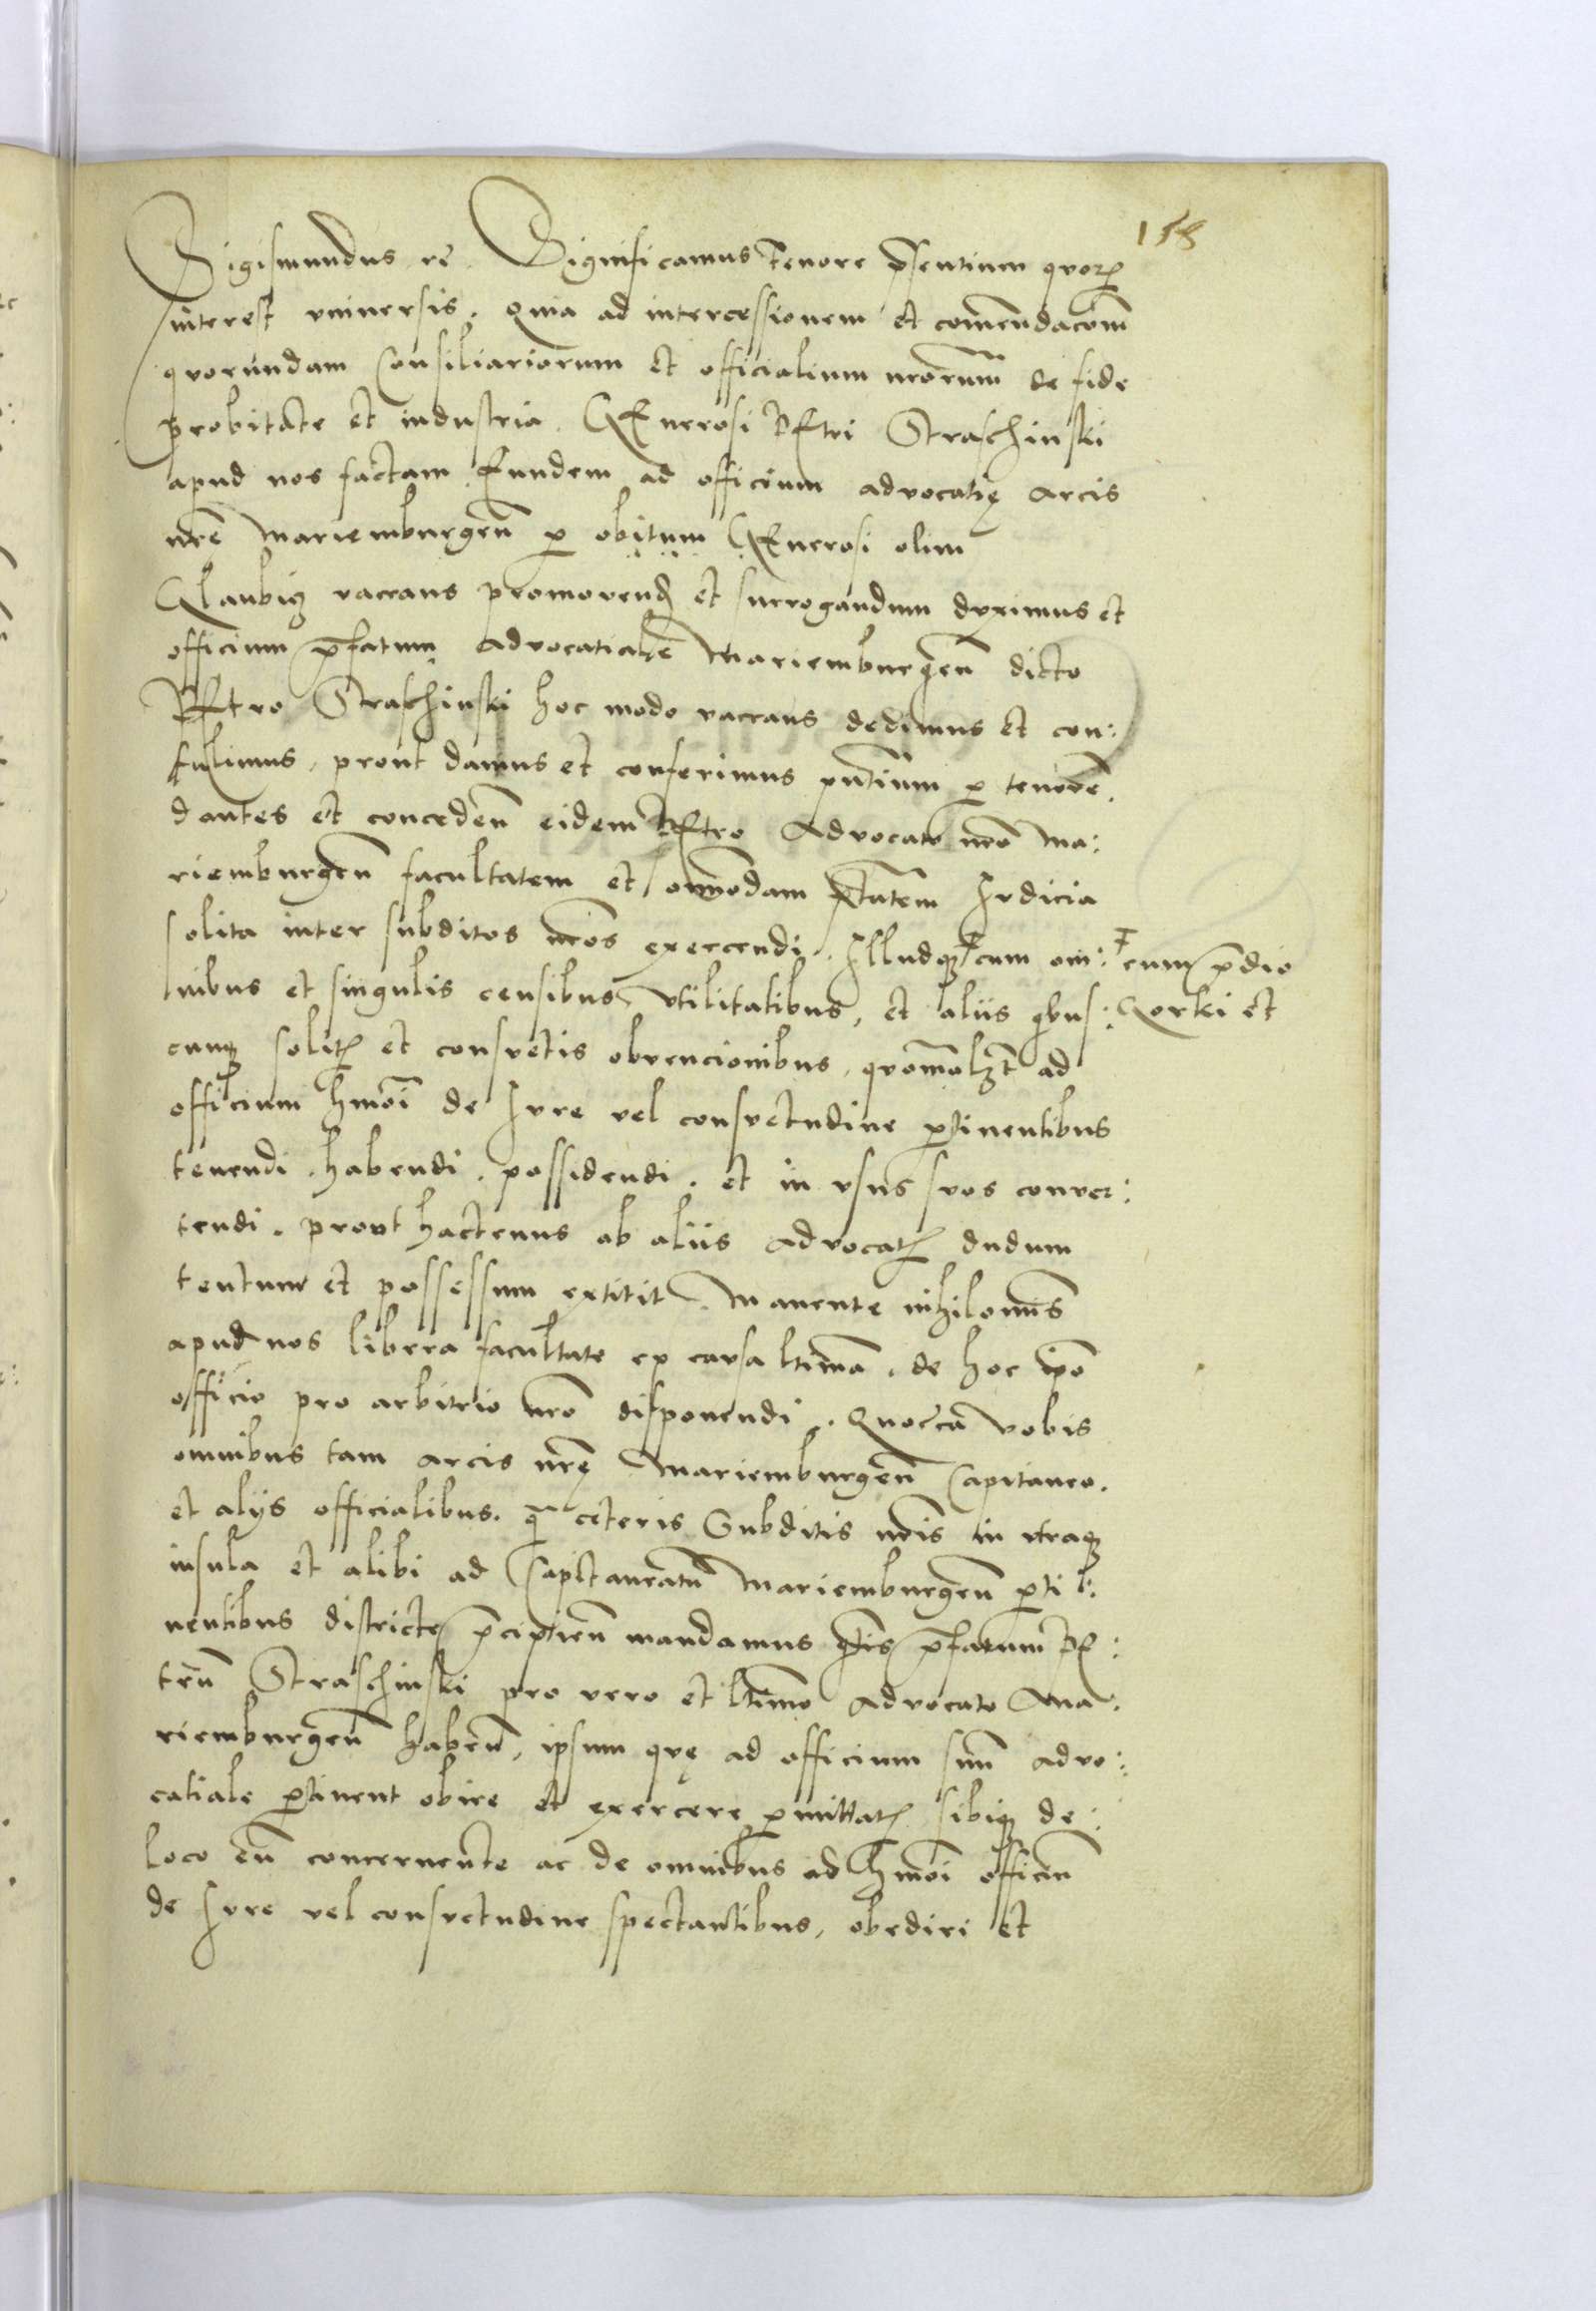 158
Sigismundus rē. Significamus tenore p̄sentium quoꝝ
interest vniuersis. Quia ad intercessionem et comendacōm
quorundam Consiliariorum et officialium nr̄orum de fide
probitate et industria GEnerosi PEtri Straschinski
apud nos factam Eundem ad officium advocatię arcis
nr̄e Mariemburgen̄ ꝑ obitum GEnerosi olim
Glaubicz vacans promovend et surrogandum duximus et
officium p̄fatum advocatiale Mariemburgen̄ dicto
PEtro Straschinski hoc modo vacans dedimus et con:
tulimus, prout damus et conferimus pn̄tium ꝑ tenorē.
dantes et conceden̄ eidem PEtro Advocato nr̄o Ma:
riemburgen̄ facultatem et om̄odam ptātem Iudicia
solita inter subditos nr̄os exercendi. Illudqꝫ Ŧ cum om:
Ŧ cum p̄dio
Gorki et
nibus et singulis censibus, vtilitatibus, et aliis qbus:
cunqꝫ solitꝭ et consuetis obvencionibus, quomōlꝫt ad
officium hm̄oi de Iure vel consuetudine ꝑtinentibus
tenendi. habendi. possidendi. et in vsus suos conver:
tendi. prout hactenus ab aliis advocatꝭ dudum
tentum et possessum extitit. Manente nihilomi̅s
apud nos libera facultate ex causa ltima. de hoc ip̄o
officio pro arbitrio nr̄o disponendi. Quoc̄ca vobis
omnibus tam arcis nr̄ę Mariemburgen̄ Capitaneo.
et alijs officialibus. q̄ ceteris Subditis nr̄is in vtraqꝫ
insula et alibi ad Capitaneatū Mariemburgen̄ ꝑti:
nentibus districte p̄cipien̄ mandamus qt̄is p̄fatum PE:
trū Straschinski pro vero et ltimo Advocato Ma:
riemburgen̄ haben̄, ipsum quę ad officium suū advo:
catiale ꝑtinent obire et exercere ꝑmittatꝭ sibiqꝫ de
loco eū concernente ac de omnibus ad hm̄oi officiū
de Iure vel consuetudine spectantibus, obediri et